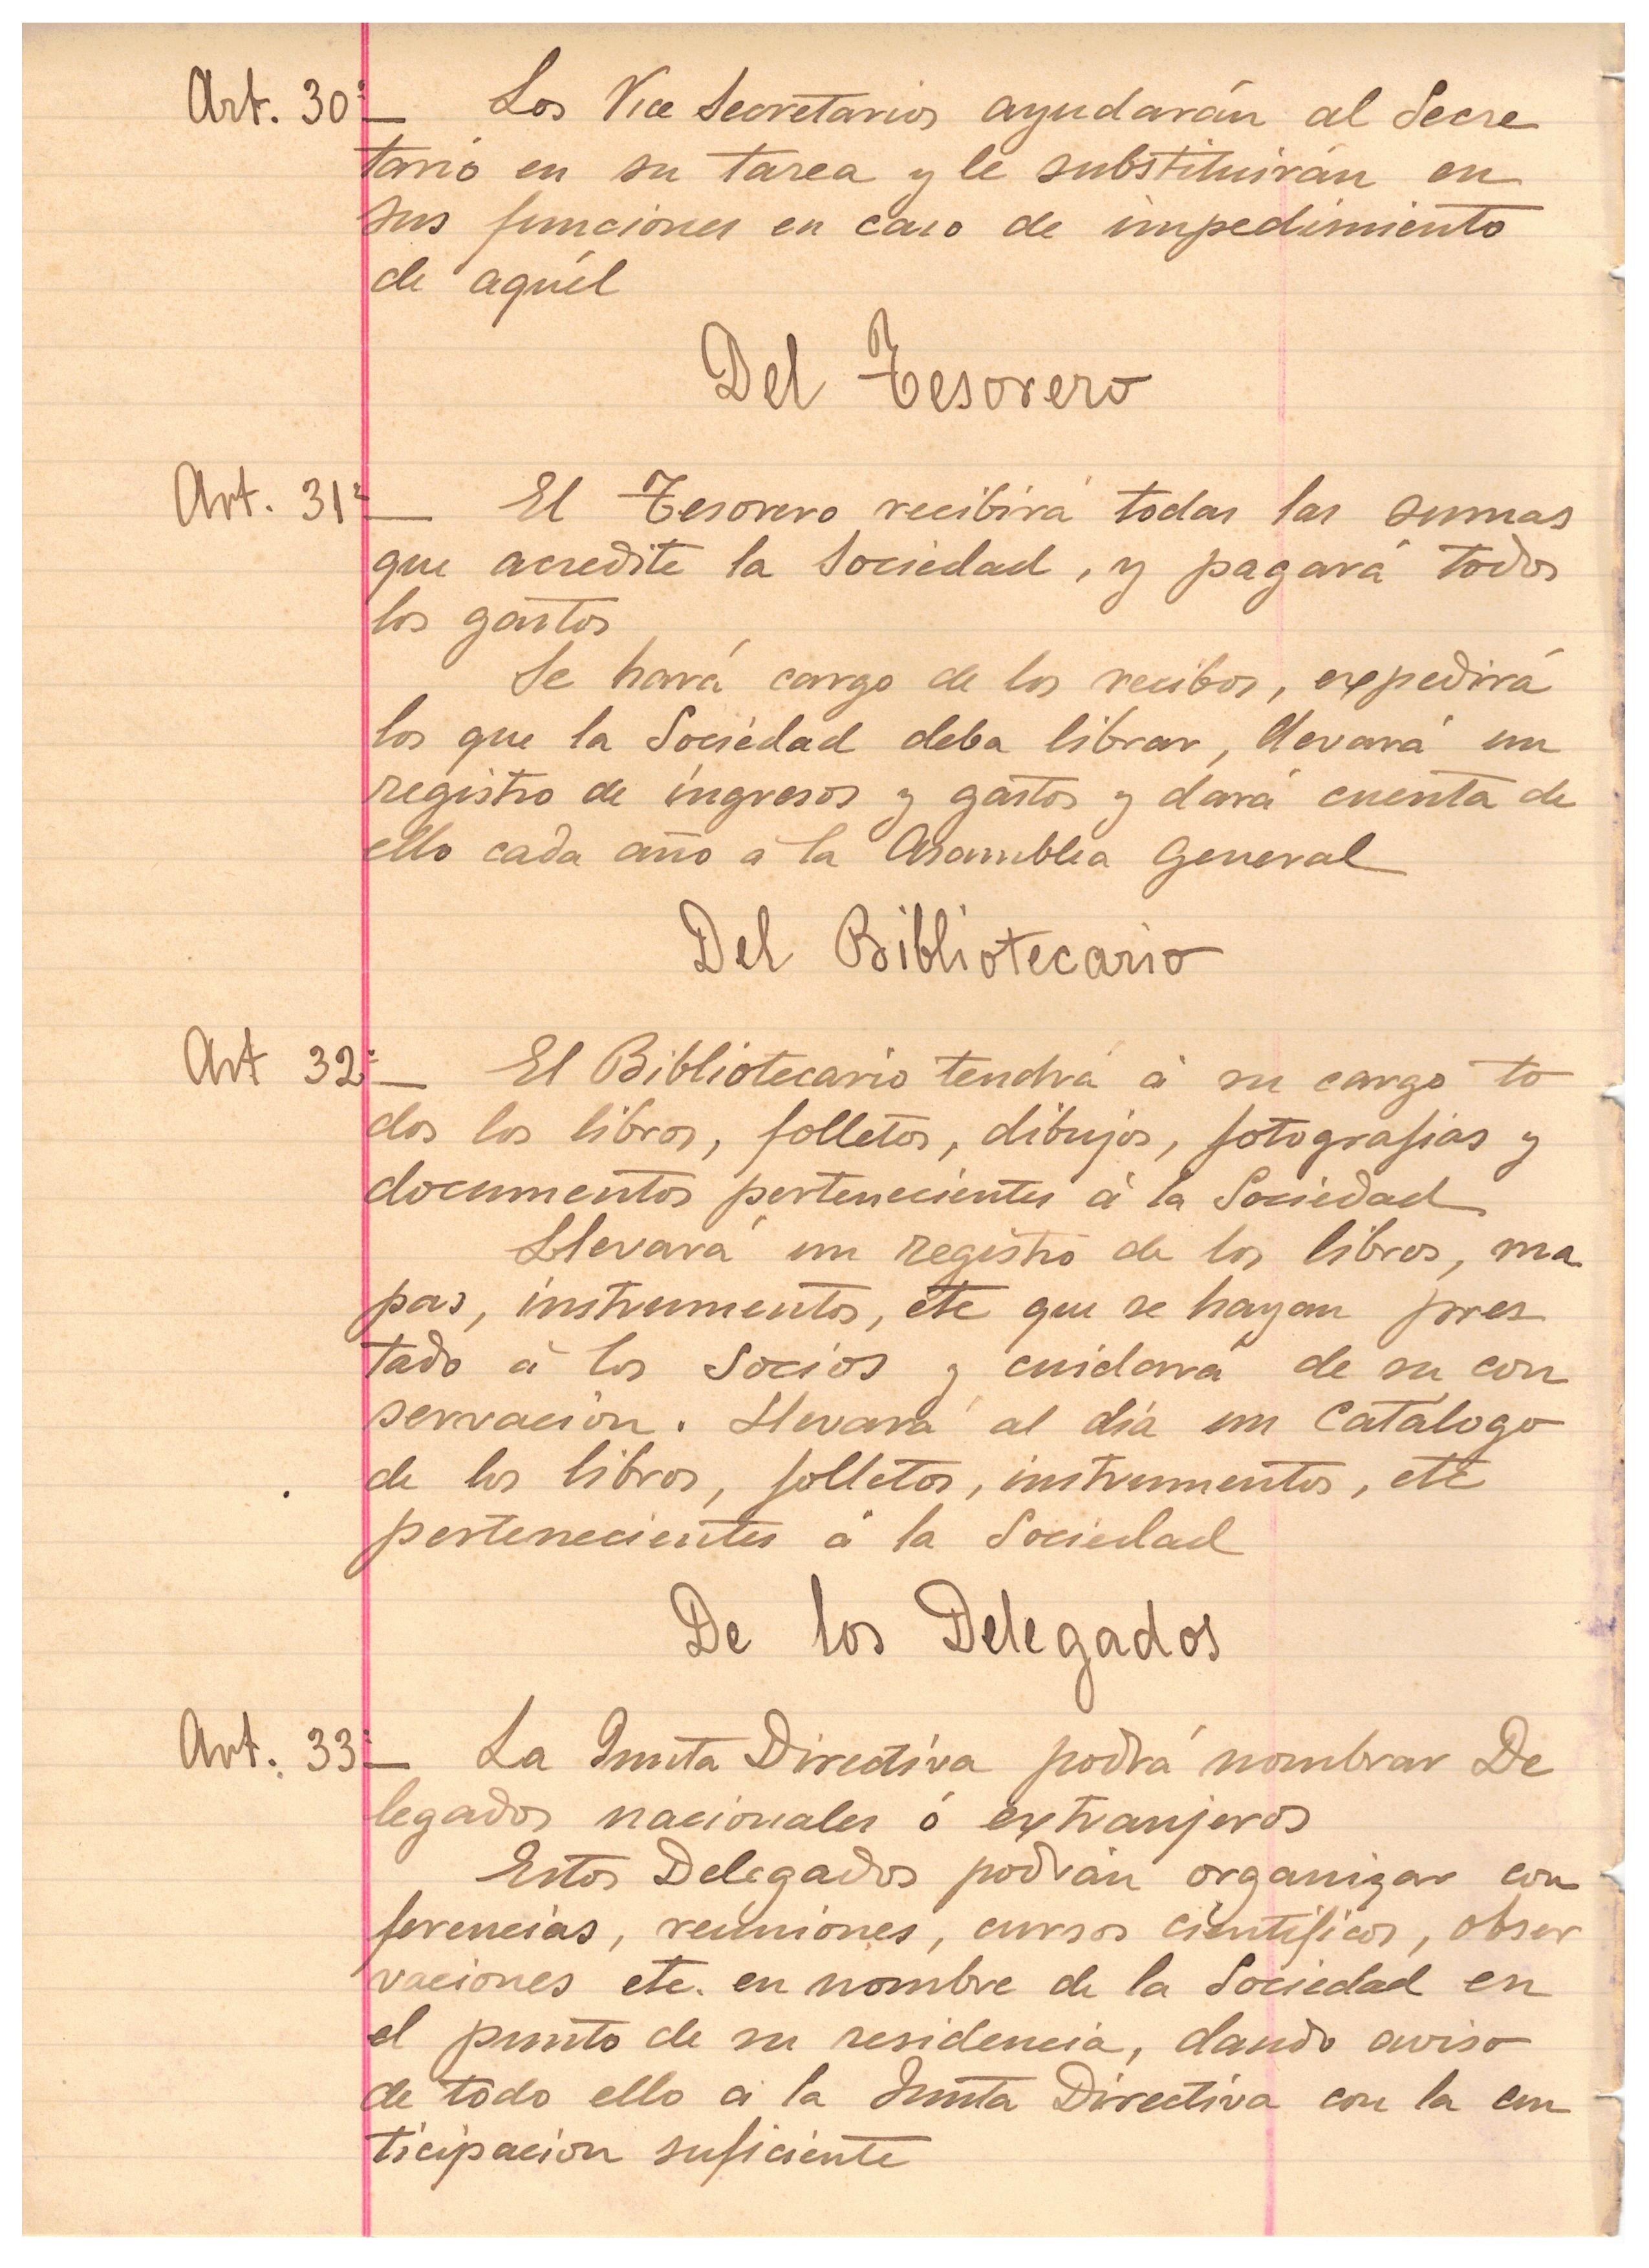 Art. 30º— Los Vice Secretarios ayudarán al Secre
tario en su tarea y le substituirán en
sus funciones en caso de impedimiento
de aquél
Del Tesorero
Art. 31º— El Tesorero recibirá todas las sumas
que acredite la Sociedad, y pagará todos
los gastos
Se hará cargo de los recibos, expedirá
los que la Sociedad deba librar, llevará un
registro de ingresos y gastos y dará cuenta de
ello cada año a la Asamblea General
Del Bibliotecario
Art 32º— El Bibliotecario tendrá á su cargo to
dos los libros, folletos, dibujos, fotografias y
documentos pertenecientes á la Sociedad
Llevará un registro de los libros, ma
pas, instrumentos, etc que se hayan pres
tado á los socios y cuidará de su con
servación. Llevará al día un catálogo
de los libros, folletos, instrumentos, etc
pertenecientes á la Sociedad
De los Delegados
Art. 33º— La Junta Directiva podrá nombrar De
legados nacionales ó extranjeros
Estos Delegados podrán organizar con
ferencias, reuniones, cursos cientificos, obser
vaciones etc. en nombre de la Sociedad en
el punto de su residencia, dando aviso
de todo ello a la Junta Directiva con la an
ticipacion suficiente